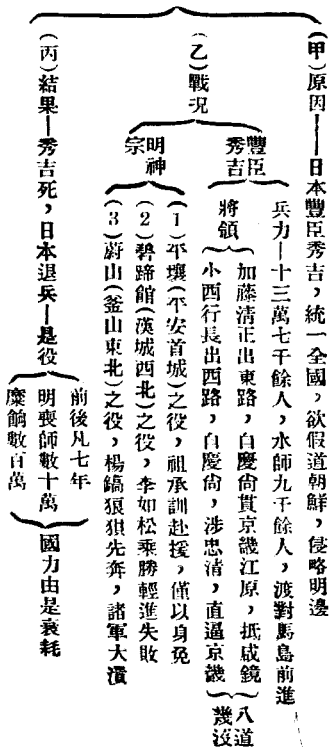 (甲)原因——日本豐臣秀吉,統一全國,欲假道朝鮮,侵略明邊
(乙)戰況
豐臣秀吉
兵力—十三萬七千餘人,水師九千餘人,渡對馬島前進
將領
加藤清正出東路,自慶尙貫京畿江原,抵咸鏡
小西行長出西路,自慶尙,涉忠清,直逼京畿
八道幾沒
明神宗
(1)平壤(平安首城)之役,祖承訓赴援,僅以身免
(2)碧蹄館(漢城西北)之役,李如松乘勝輕進失敗
(3)蔚山(釜山東北)之役,楊鎬狼狽先奔,諸軍大潰
(丙)結果—秀吉死,日本退兵—是役
前後凡七年
明喪師數十萬
糜餉數百萬
國力由是衰耗